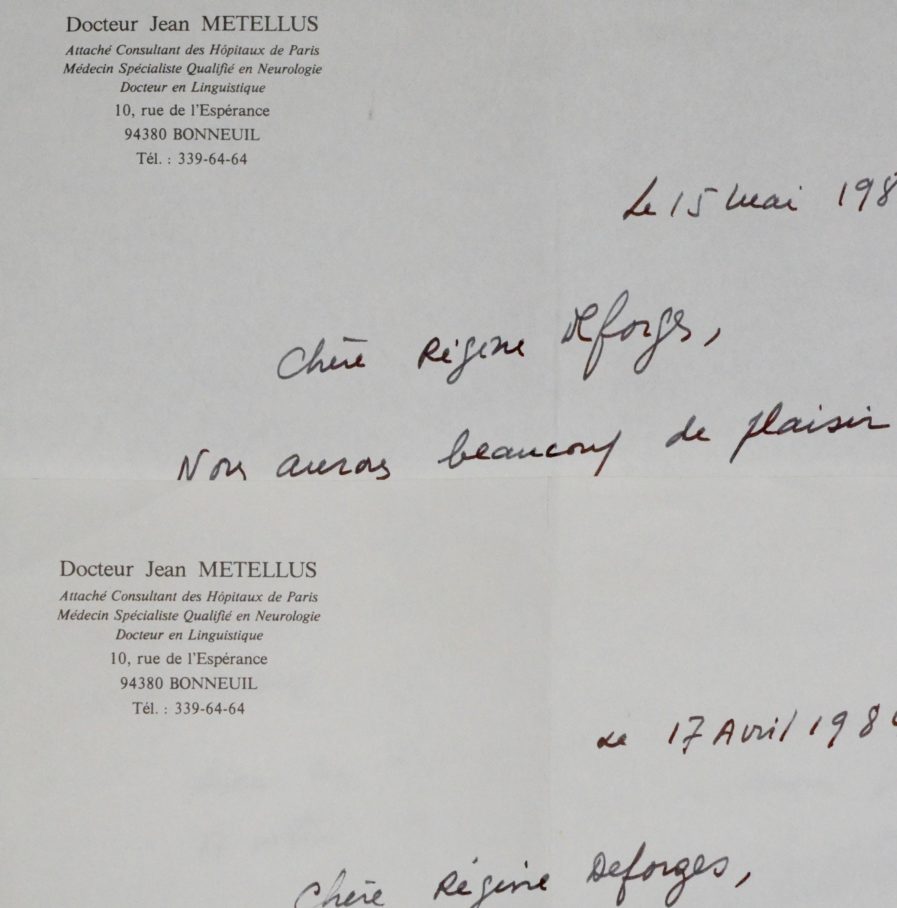 Docteur Jean METELLUS
Attaché Consultant des Hôpitaux de Paris
Médecin Spécialiste Qualifié en Neurologie
Docteur en Linguistique
10, rue de l'Espérance
94380 BONNEUIL
Tél. : 339-64-64
Le 15 Mai 198
Chère Régine Deforges,
Nous aurons beaucoup de plaisir
Docteur Jean METELLUS
Attaché Consultant des Hôpitaux de Paris
Médecin Spécialiste Qualifié en Neurologie
Docteur en Linguistique
10, rue de l'Espérance
94380 BONNEUIL
Tél. : 339-64-64
Le 17 Avril 198
Chère Régine Deforges,